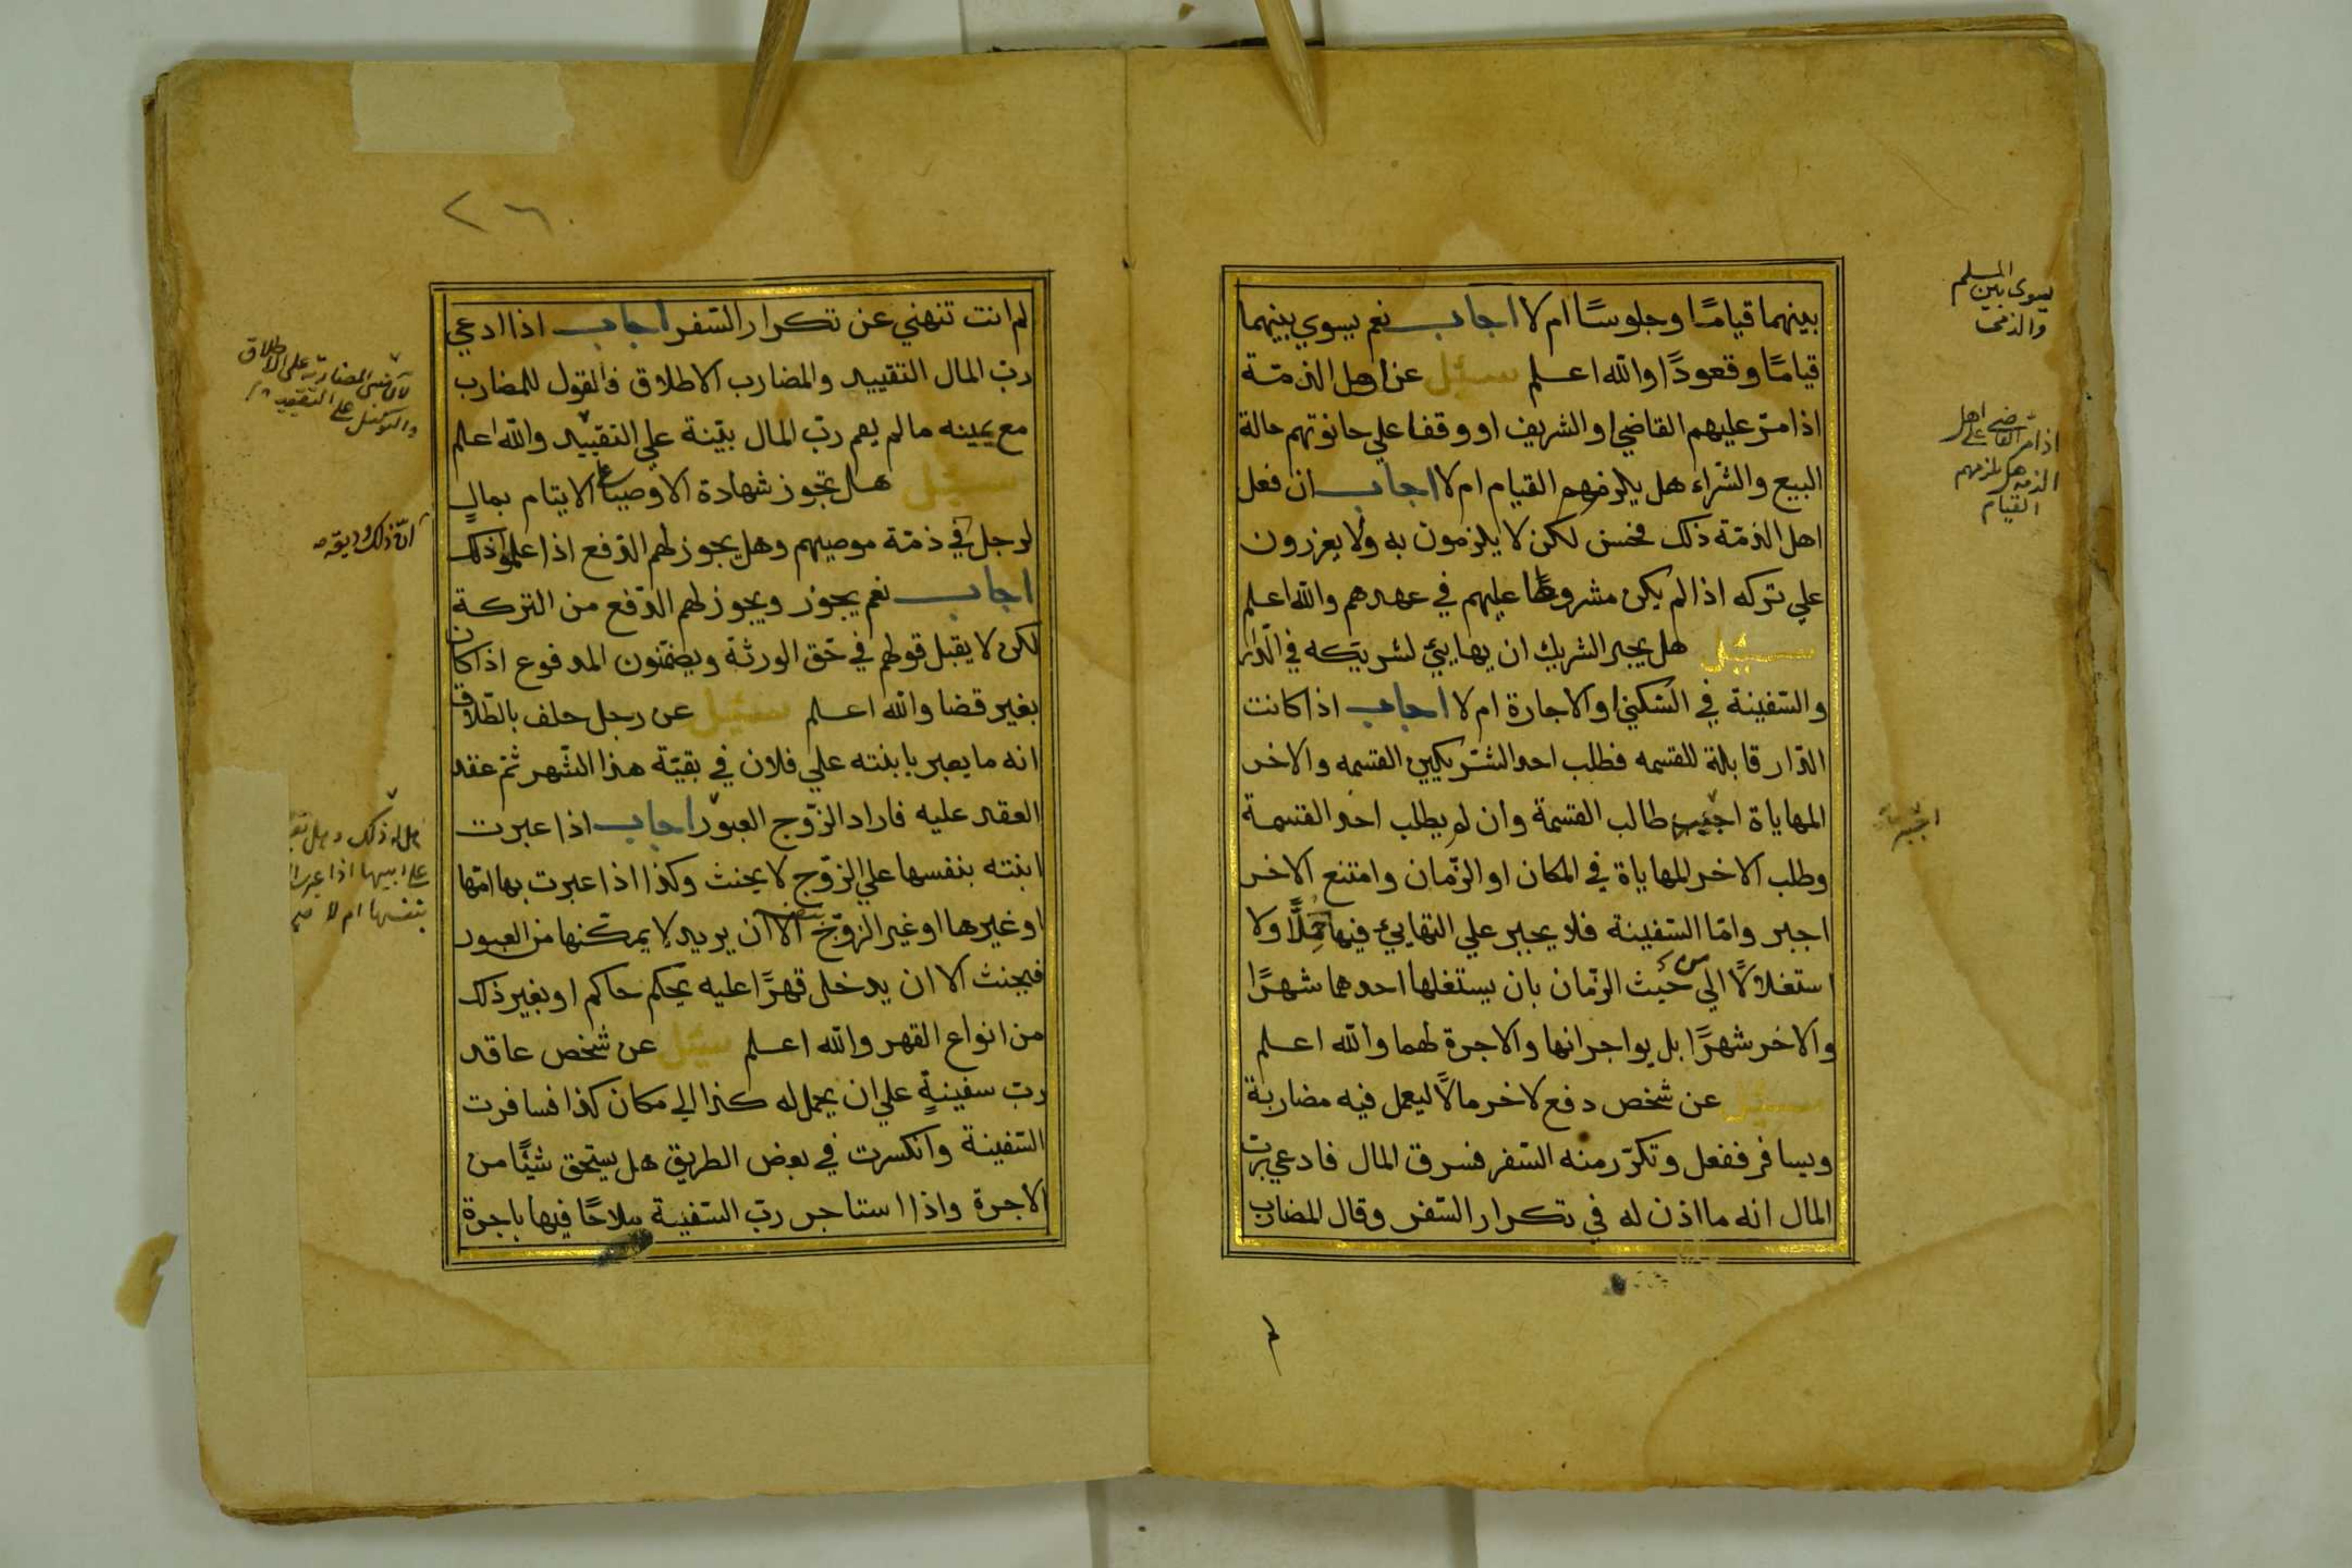 بينهما قيامًا وجلوسًا ام لا اجاب نعم يسوي بينهما
قيامًا وقعودًا والله اعلم سئل عن اهل الذمّة
اذا مرّ عليهم القاضي او الشريف او وقفا علي حانوتهم حالة
البيع والشّراء هل يلزمهم القيام ام لا اجاب ان فعل
اهل الذمّة ذلك فحسن لكن لا يلزمون به ولا يعزرون
علي تركه اذا لم يكن مشروطًا عليهم في عهدهم والله اعلم
سئل هل يجبر الشريك ان يهايئ لشريكه في الدّار
والسّفينة في السّكني او الاجارة ام لا اجاب اذا كانت
الدّار قابلة للقسمه فطلب احد الشّريكين القسمه والاخر
المهاياة اجيب طالب القسمة وان لم يطلب احد القسمة
وطلب الاخر المهاياة في المكان او الزّمان وامتنع الاخر
اجبر وامّا السّفينة فلا يجبر علي التهايئ فيها حملًا ولا
استغلالًا الي من حيث الزّمان بان يستغلها احدهما شهرًا
والاخر شهرًا بل يواجرانها والاجرة لهما والله اعلم
سئل عن شخص دفع لاخر مالًا ليعمل فيه مضاربة
ويسافر ففعل وتكرّر منه السّفر فسرق المال فادعي رب
المال انه ما اذن له في تكرار السّفر وقال المضارب
لم
يسوي بين المسلم
والذمي
اذا مرّ القاضي على اهل
الذمه هل يلزمهم
القيام
٢٦٠
لم انت تنهني عن تكرار السّفر اجاب اذا ادعي
ربّ المال التقييد والمضارب الاطلاق فالقول للمضارب
مع يمينه مالم يقم ربّ المال بيّنة علي التقييد والله اعلم
سئل هل تجوز شهادة الاوصيا علي الايتام بمالٍ
لرجل في ذمّة موصيهم وهل يجوز لهم الدّفع اذا علموا ذلك
اجاب نعم يجوز ويجوز لهم الدّفع من التركة
لكن لا يقبل قولهم في حّق الورثة ويضمّنون المدفوع اذا كان
بغير قضا والله اعلم سئل عن رجل حلف بالطّلاق
انه ما يعبر بابنته علي فلان في بقيّة هذا الشّهر ثم عقد
العقد عليه فاراد الزّوج العبور اجاب اذا عبرت
ابنته بنفسها علي الزّوج لا يحنث وكذا اذا عبرت بها امّها
او غيرها او غير الزوّج الا ان يريد لا يمكّنها من العبور
فيحنث الا ان يدخل قهرًا عليه بحكم حاكم او بغير ذلك
من انواع القهر والله اعلم سئل عن شخص عاقد
ربّ سفينةٍ علي ان يحمل له كذا الي مكان كذا فسافرت
السّفينة وانكسرت في بعض الطريق هل يستحق شئًا من
الاجرة واذا استاجر ربّ السّفينة ملاحًا فيها باجرة
لان مبنى المضاربة على الاطلاق
والتوكيل على التقييد
ان ذلك وديعة
فهل له ذلك وهل
على ابيها اذا عبرت
بنفسها ام لا صح